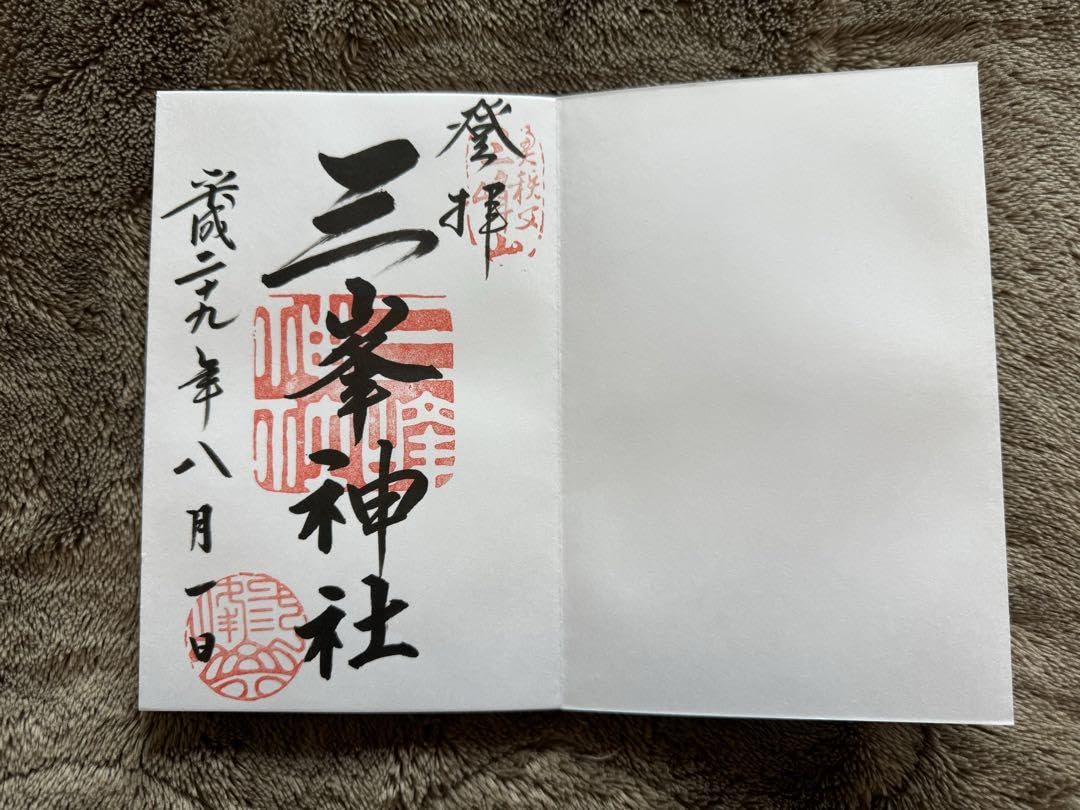 登拝
奥秩父
三峰山
三峯神社
平成二十九年八月一日